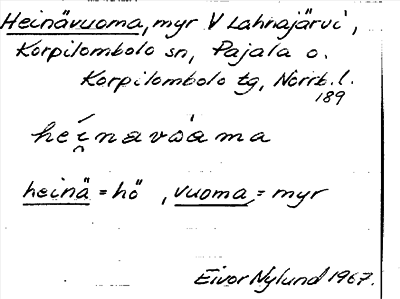 Heinävuoma, myr V Lahnajärvi,
Korpilombolo sn, Pajala o.
Korpilombolo tg, Norrb. l.
189
heinä = hö, vuoma = myr
Eivor Nylund 1967.